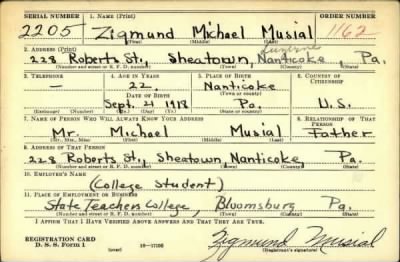 SERIAL NUMBER 1. NAME (Print) ORDER NUMBER
2205 Zigmund Michael Musial 1162
(First) (Middle) (Last)
2. ADDRESS (Print)
Luzerne
228 Roberts St., Sheatown, Nanticoke, Pa.
(Number and street or R. F. D. number) (Town) (County) (State)
3. TELEPHONE 4. AGE IN YEARS 5. PLACE OF BIRTH 6. COUNTRY OF CITIZENSHIP
— 22. Nanticoke
DATE OF BIRTH (Town or county)
Sept. 21 1918 Pa. U.S.
(Exchange) (Number) (Mo.) (Day) (Yr.) (State or country)
7. NAME OF PERSON WHO WILL ALWAYS KNOW YOUR ADDRESS 8. RELATIONSHIP OF THAT PERSON
Mr. Michael Musial Father
(Mr., Mrs., Miss) (First) (Middle) (Last)
9. ADDRESS OF THAT PERSON
228 Roberts St., Sheatown, Nanticoke Pa.
(Number and street or R. F. D. number) (Town) (County) (State)
10. EMPLOYER'S NAME
(College Student)
11. PLACE OF EMPLOYMENT OR BUSINESS
State Teachers College, Bloomsburg Pa.
(Number and street or R. F. D. number) (Town) (County) (State)
I AFFIRM THAT I HAVE VERIFIED ABOVE ANSWERS AND THAT THEY ARE TRUE.
REGISTRATION CARD
D. S. S. Form 1 (over) 16—17105 Zigmund Musial
(Registrant's signature)